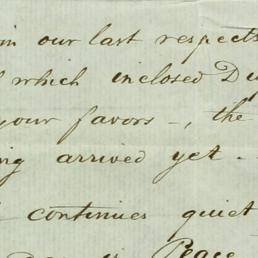 in our last respects
which inclosed Du
your favors -, the
ng arrived yet -
continues quiet
Peace